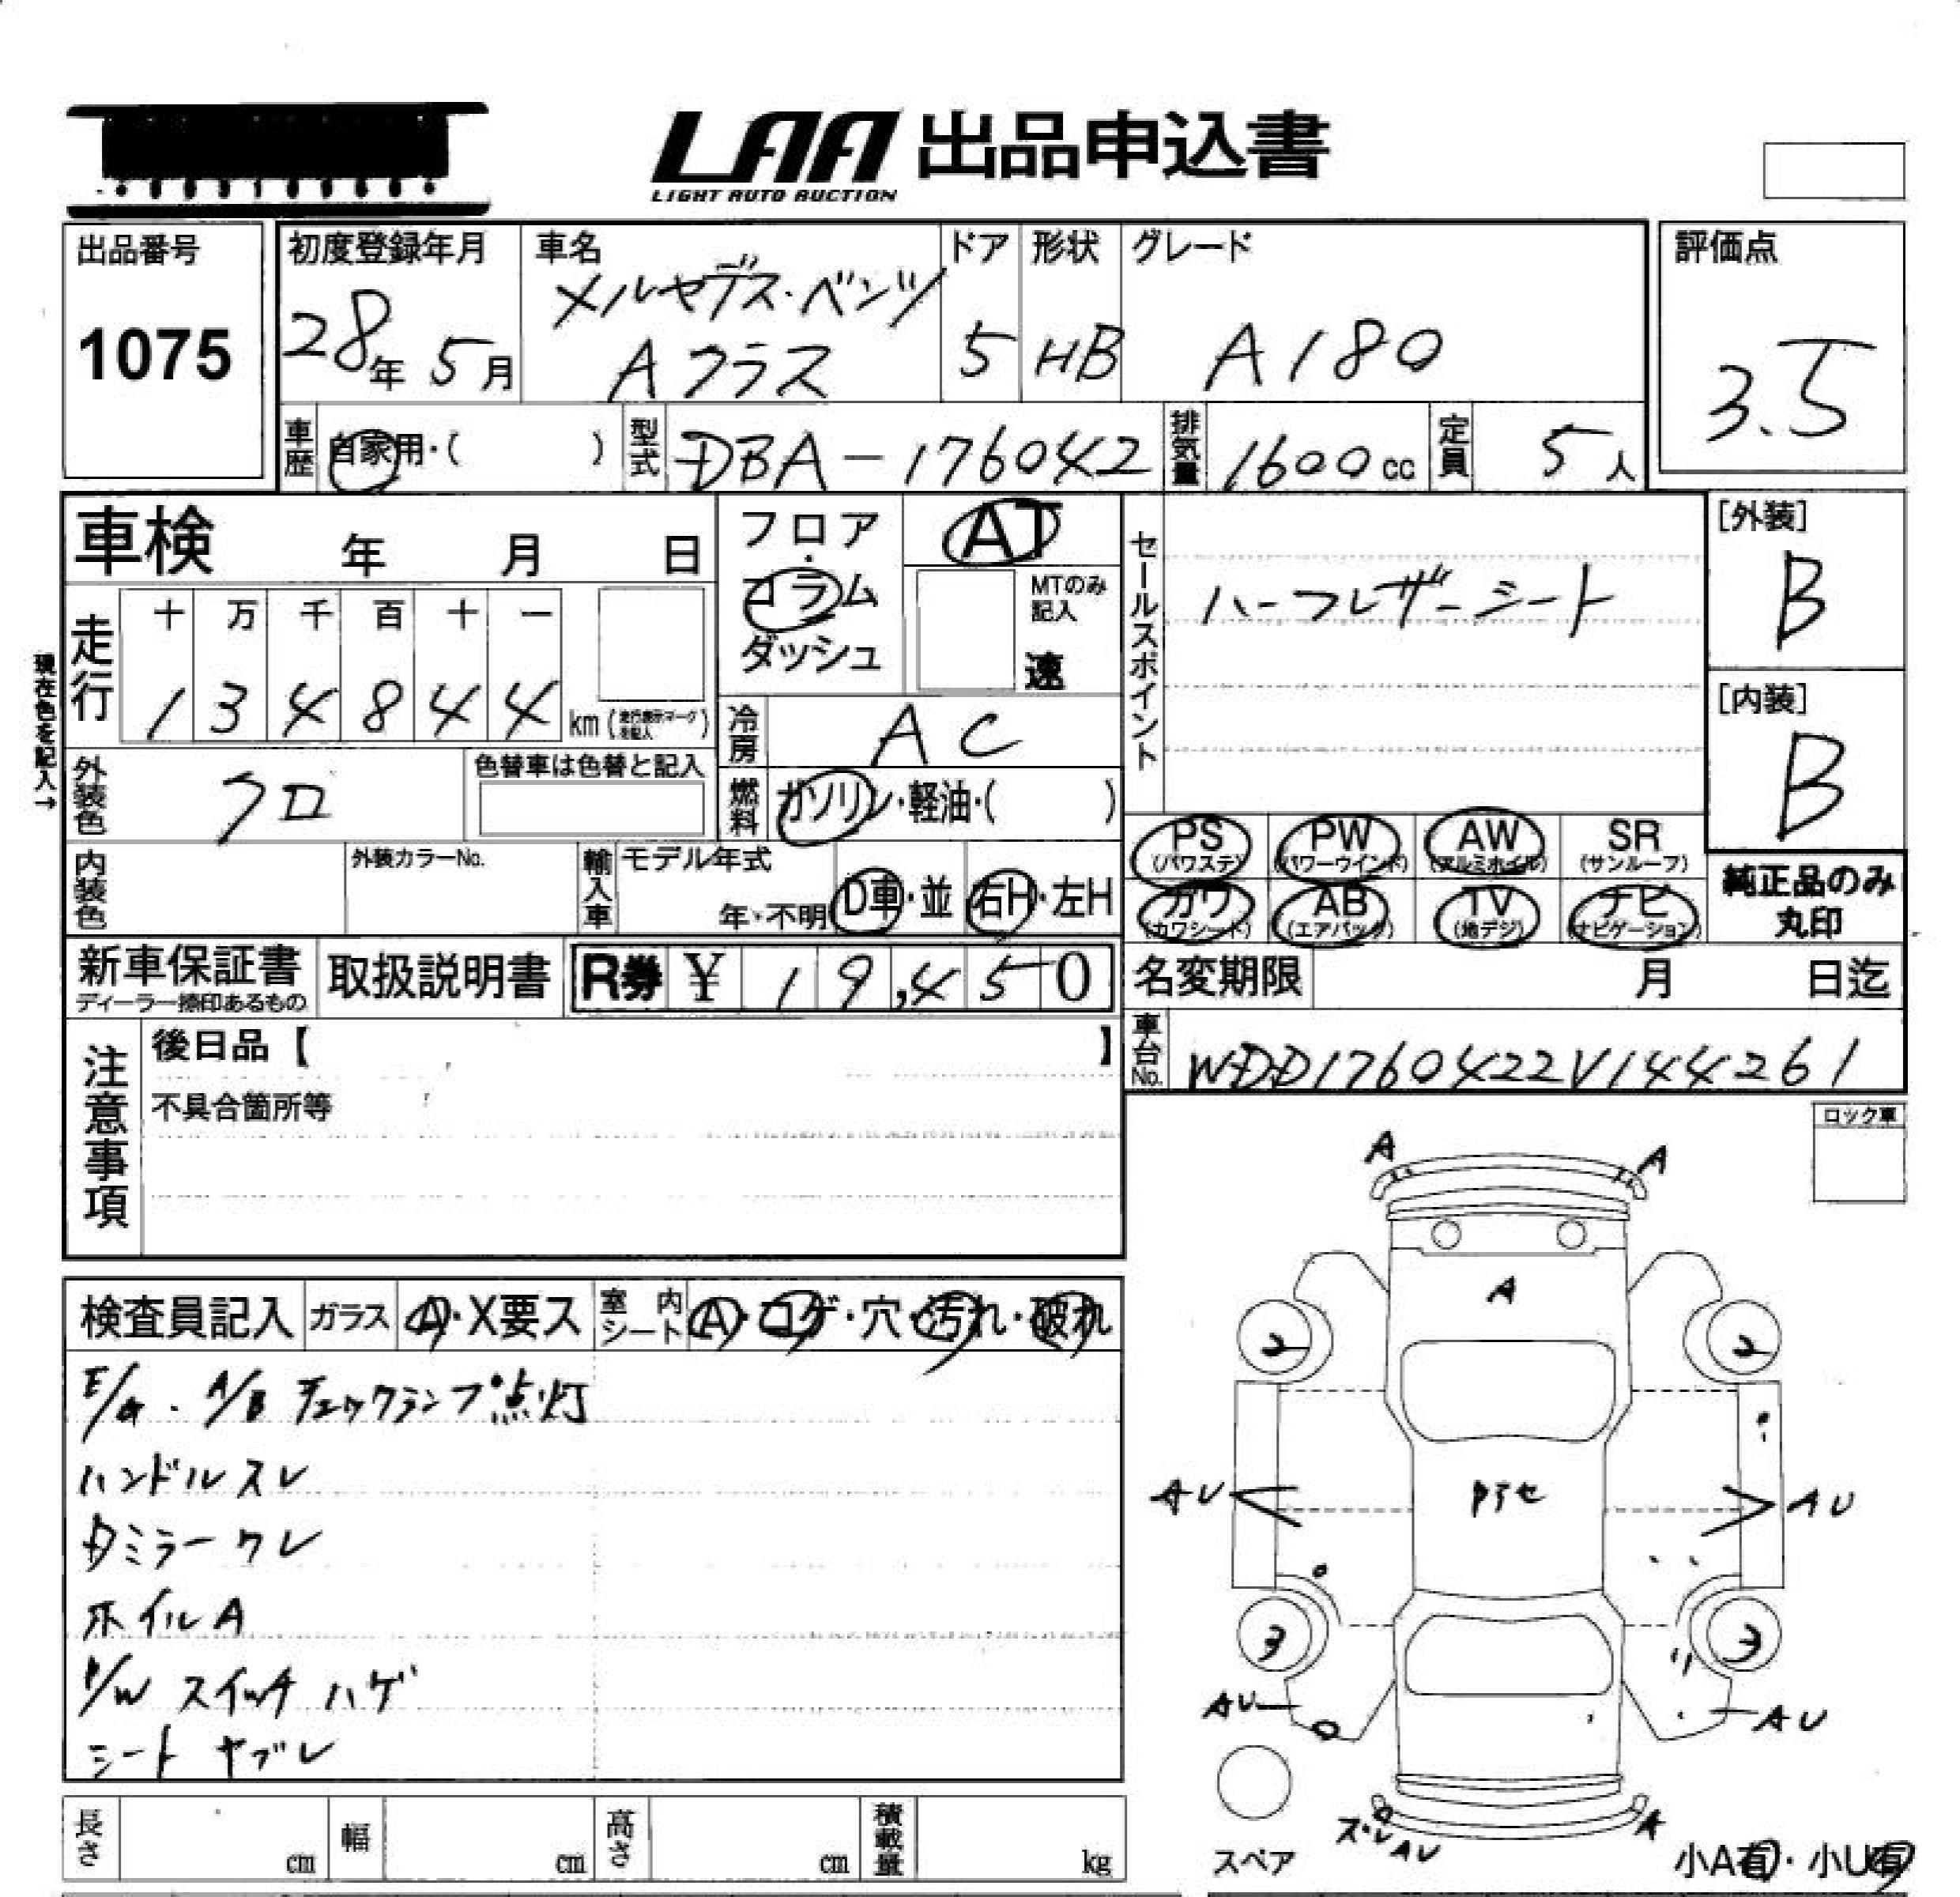 LAA 出品申込書
LIGHT AUTO AUCTION
出品番号
1075
初度登録年月
28年 5月
車名
メルセデス・ベンツ
Aクラス
ドア
5
形状
HB
グレード
A180
評価点
3.5
車歴 自家用・( )
型式 DBA-176042
排気量 1600cc
定員 5人
車検 年 月 日
フロア・コラム ダッシュ
AT
MTのみ記入
速
セールスポイント
ハーフレザーシート
[外装]
B
[内装]
B
現在色を記入→
走行
十 万 千 百 十 一
1 3 4 8 4 4 km (走行表示マークを記入)
冷房 AC
外装色 クロ
色替車は色替と記入
燃料 ガソリン・軽油・( )
内装色
外装カラーNo.
輸入車 モデル年式
年・不明
D車・並
右H・左H
PS (パワステ)
PW (パワーウインド)
AW (アルミホイル)
SR (サンルーフ)
カワ (カワシート)
AB (エアバック)
TV (地デジ)
ナビ (ナビゲーション)
純正品のみ
丸印
新車保証書
ディーラー捺印あるもの
取扱説明書
R券 ¥ 19,450
名変期限 月 日迄
車台No. WDD1760422V144261
注意事項
後日品【 】
不具合箇所等
ロック車
検査員記入
ガラス A・X要ス
室内シート A・コゲ・穴・汚れ・破れ
E/G. A/B チェックランプ点灯
ハンドルスレ
ホイルA
P/W スイッチ ハゲ
シート ヤブレ
A
A
A
2
2
AU
AU
3
3
AU
AU
AU
A
スペア
小A有・小U有
長さ cm
幅 cm
高さ cm
積載量 kg